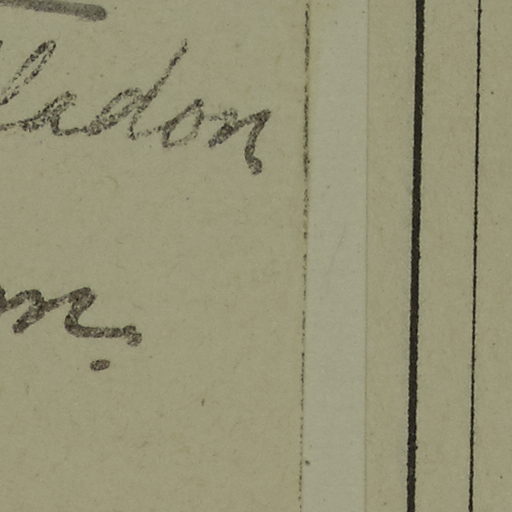 ladon
m.